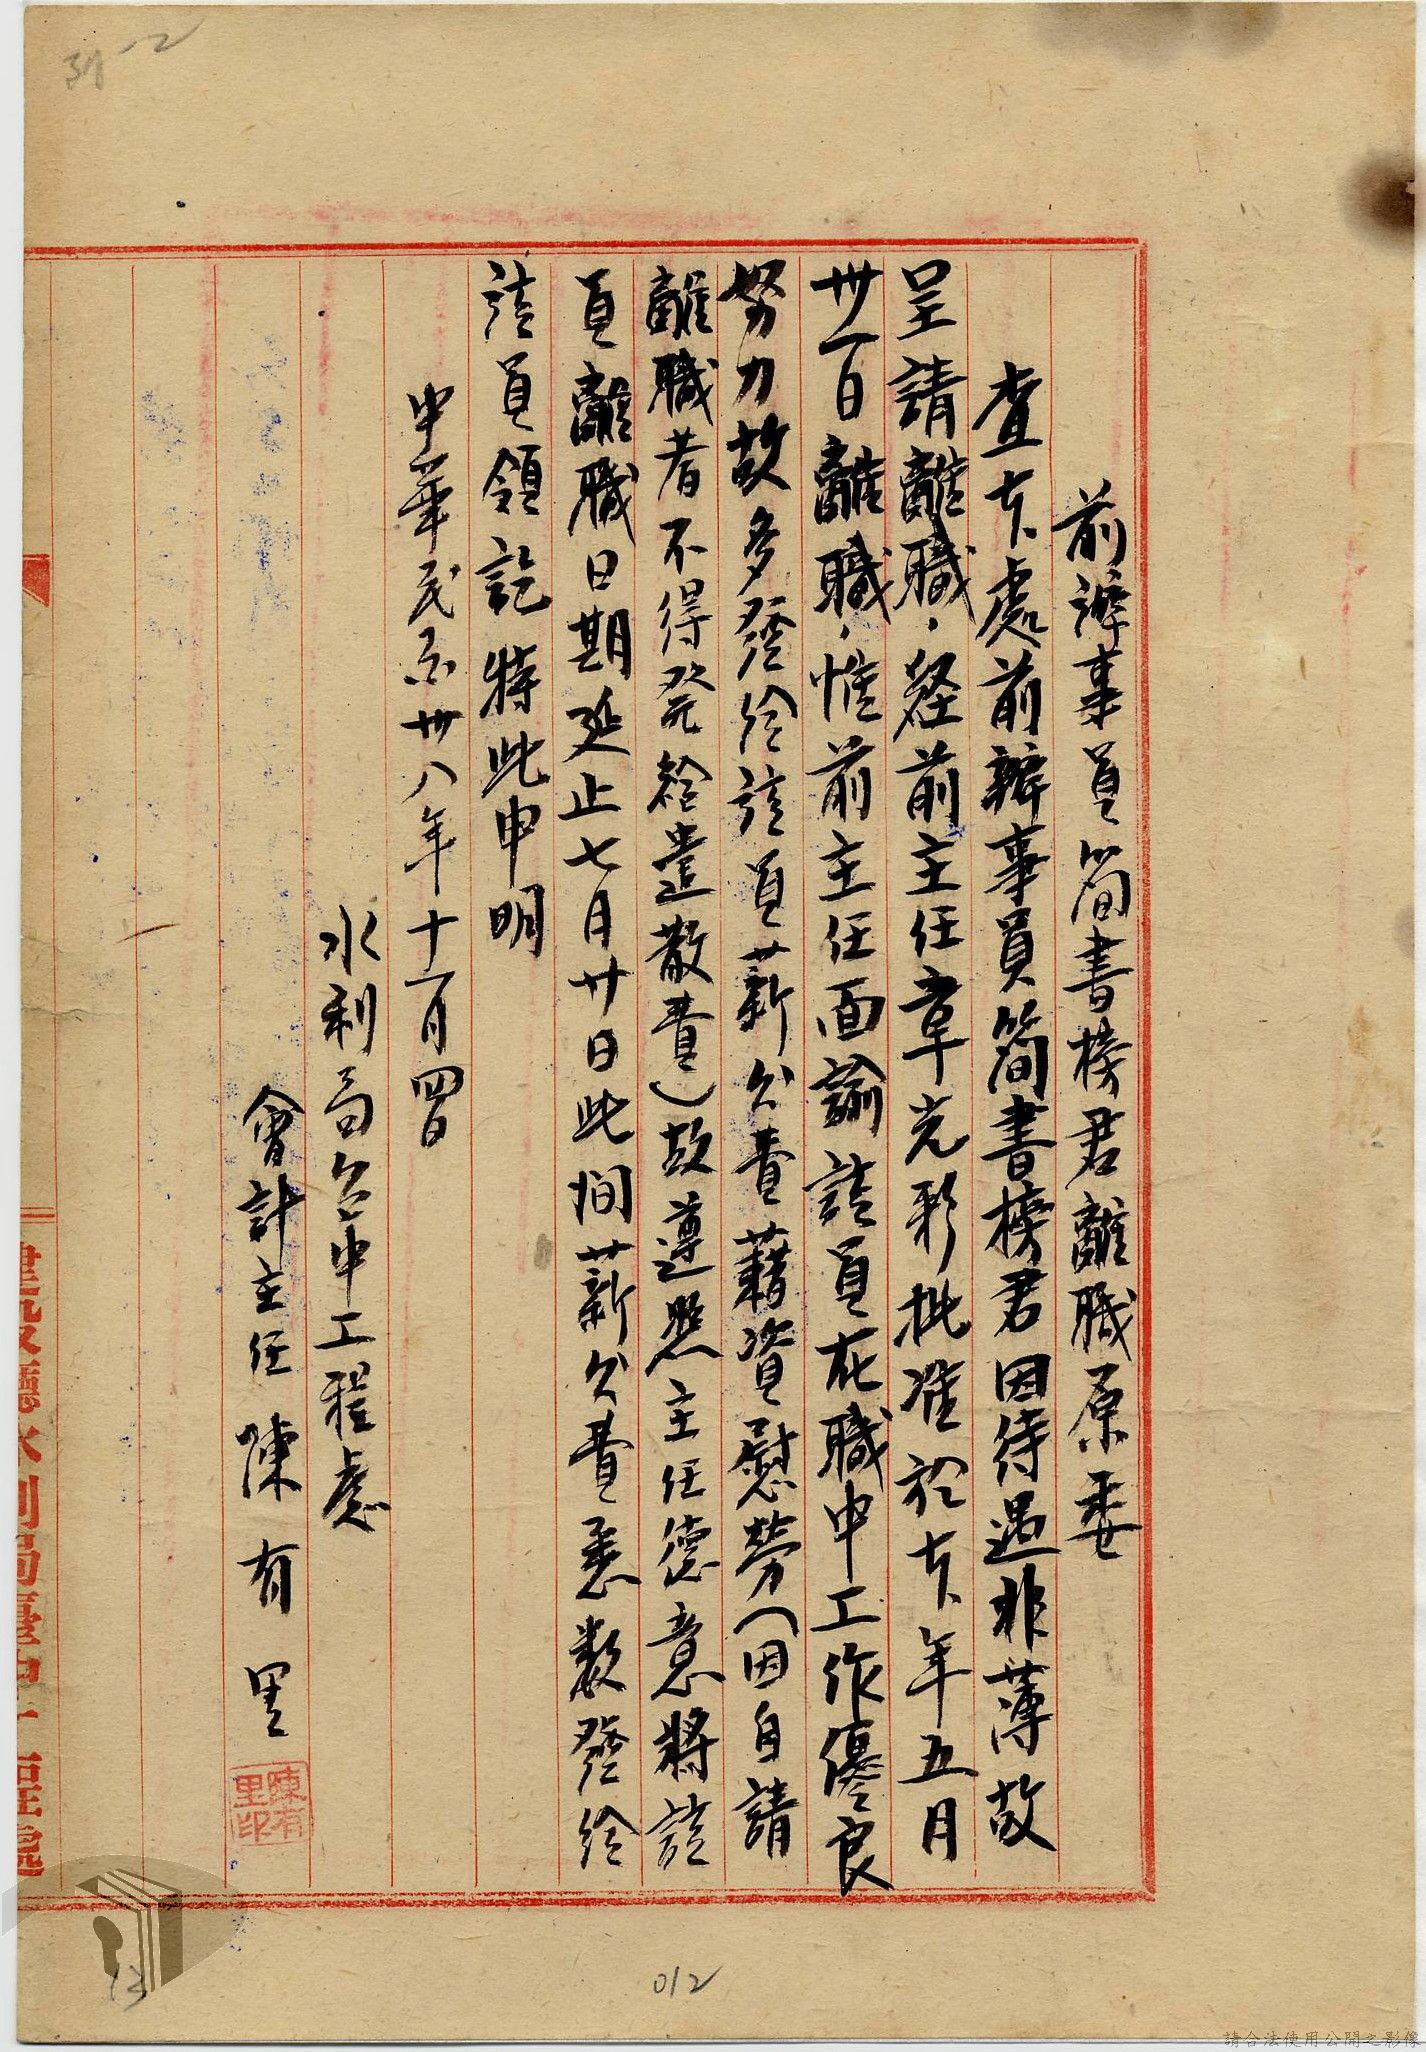 37-2
前辦事員簡書榜君離職原委
查本處前辦事員簡書榜君因待遇非薄故
呈請離職，經前主任章光彩批准於本年五月
卅一日離職，惟前主任面諭該員在職中工作優良
努力故多發給該員薪公費藉資慰勞（因自請
離職者不得發給遣散費）故遵照主任德意將該
員離職日期延止七月廿日此間薪公費悉數發給
該員領訖特此申明
中華民國卅八年十一月四日
水利局台中工程處
會計主任 陳有里
陳有里印
建設廳水利局臺中工程處
13
012
請合法使用公開之影像